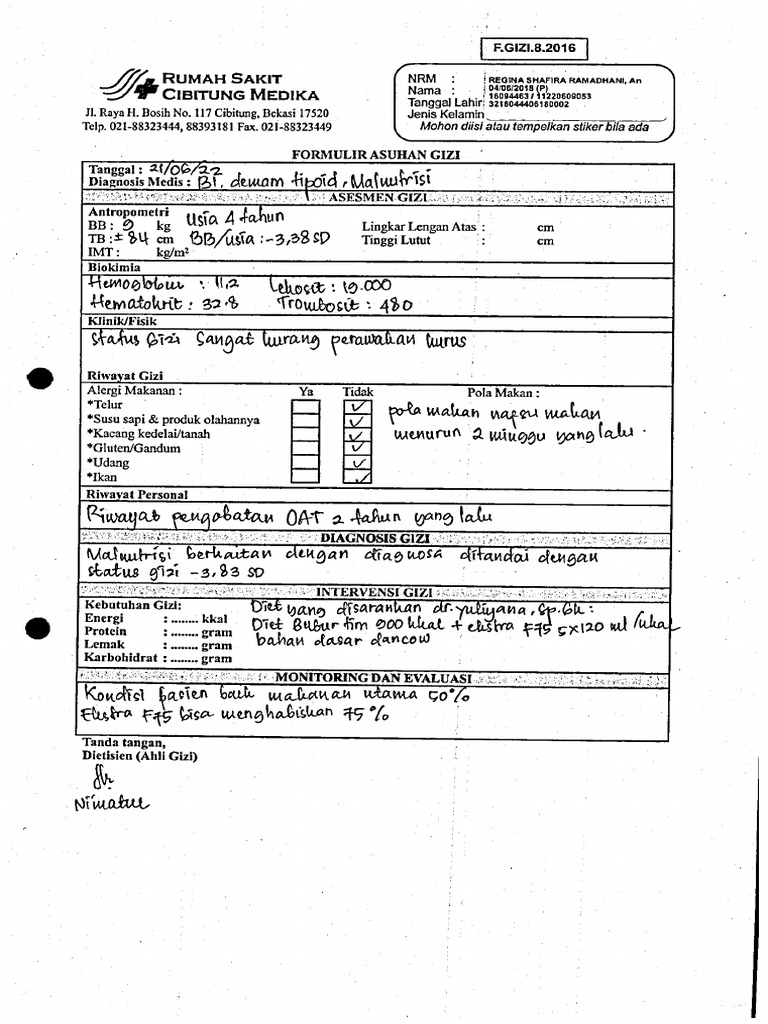 F.GIZI.8.2016
RUMAH SAKIT
CIBITUNG MEDIKA
Jl. Raya H. Bosih No. 117 Cibitung, Bekasi 17520
Telp. 021-88323444, 88393181 Fax. 021-88323449
NRM : REGINA SHAFIRA RAMADHANI, An
Nama : 04/06/2018 (P)
16094463 / 11220609053
Tanggal Lahir: 3216044406180002
Jenis Kelamin
Mohon diisi atau tempelkan stiker bila ada
FORMULIR ASUHAN GIZI
Tanggal : 21/06/22
Diagnosis Medis : B1. demam tipoid, Malnutrisi
ASESMEN GIZI
Antropometri
BB : 9 kg usia 4 tahun Lingkar Lengan Atas : cm
TB : ± 84 cm BB/usia : -3,38 SD Tinggi Lutut : cm
IMT : kg/m²
Biokimia
Hemoglobin : 11,2 Lekosit : 19.000
Hematokrit : 32.8 Trombosit : 480
Klinik/Fisik
Status Gizi Sangat kurang perawakan kurus
Riwayat Gizi
Alergi Makanan : Ya Tidak Pola Makan :
*Telur ✓
*Susu sapi & produk olahannya ✓ pola makan nafsu makan
*Kacang kedelai/tanah ✓ menurun 2 minggu yang lalu.
*Gluten/Gandum ✓
*Udang ✓
*Ikan ✓
Riwayat Personal
Riwayat pengobatan OAT 2 tahun yang lalu
DIAGNOSIS GIZI
Malnutrisi berkaitan dengan diagnosa ditandai dengan
status gizi -3,83 SD
INTERVENSI GIZI
Kebutuhan Gizi: Diet yang disarankan dr. yuliyana, Sp.Gk :
Energi : ........ kkal Diet Bubur tim 900 kkal + ekstra F75 5x120 ml /
Protein : ........ gram bahan dasar dancow
Lemak : ........ gram
Karbohidrat : ........ gram
MONITORING DAN EVALUASI
Kondisi pasien baik makanan utama 50%
Ekstra F75 bisa menghabiskan 75%
Tanda tangan,
Dietisien (Ahli Gizi)
Nimatul